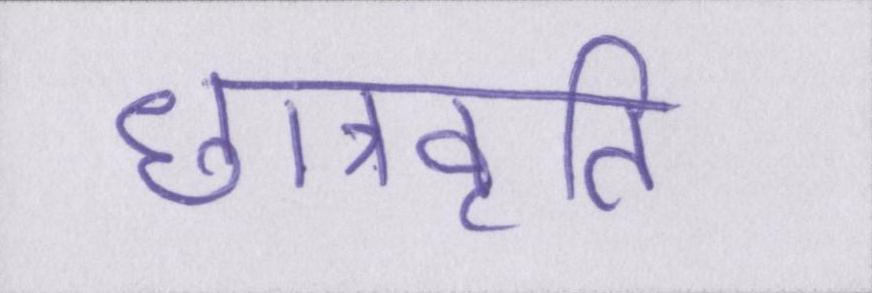 छात्रवृति